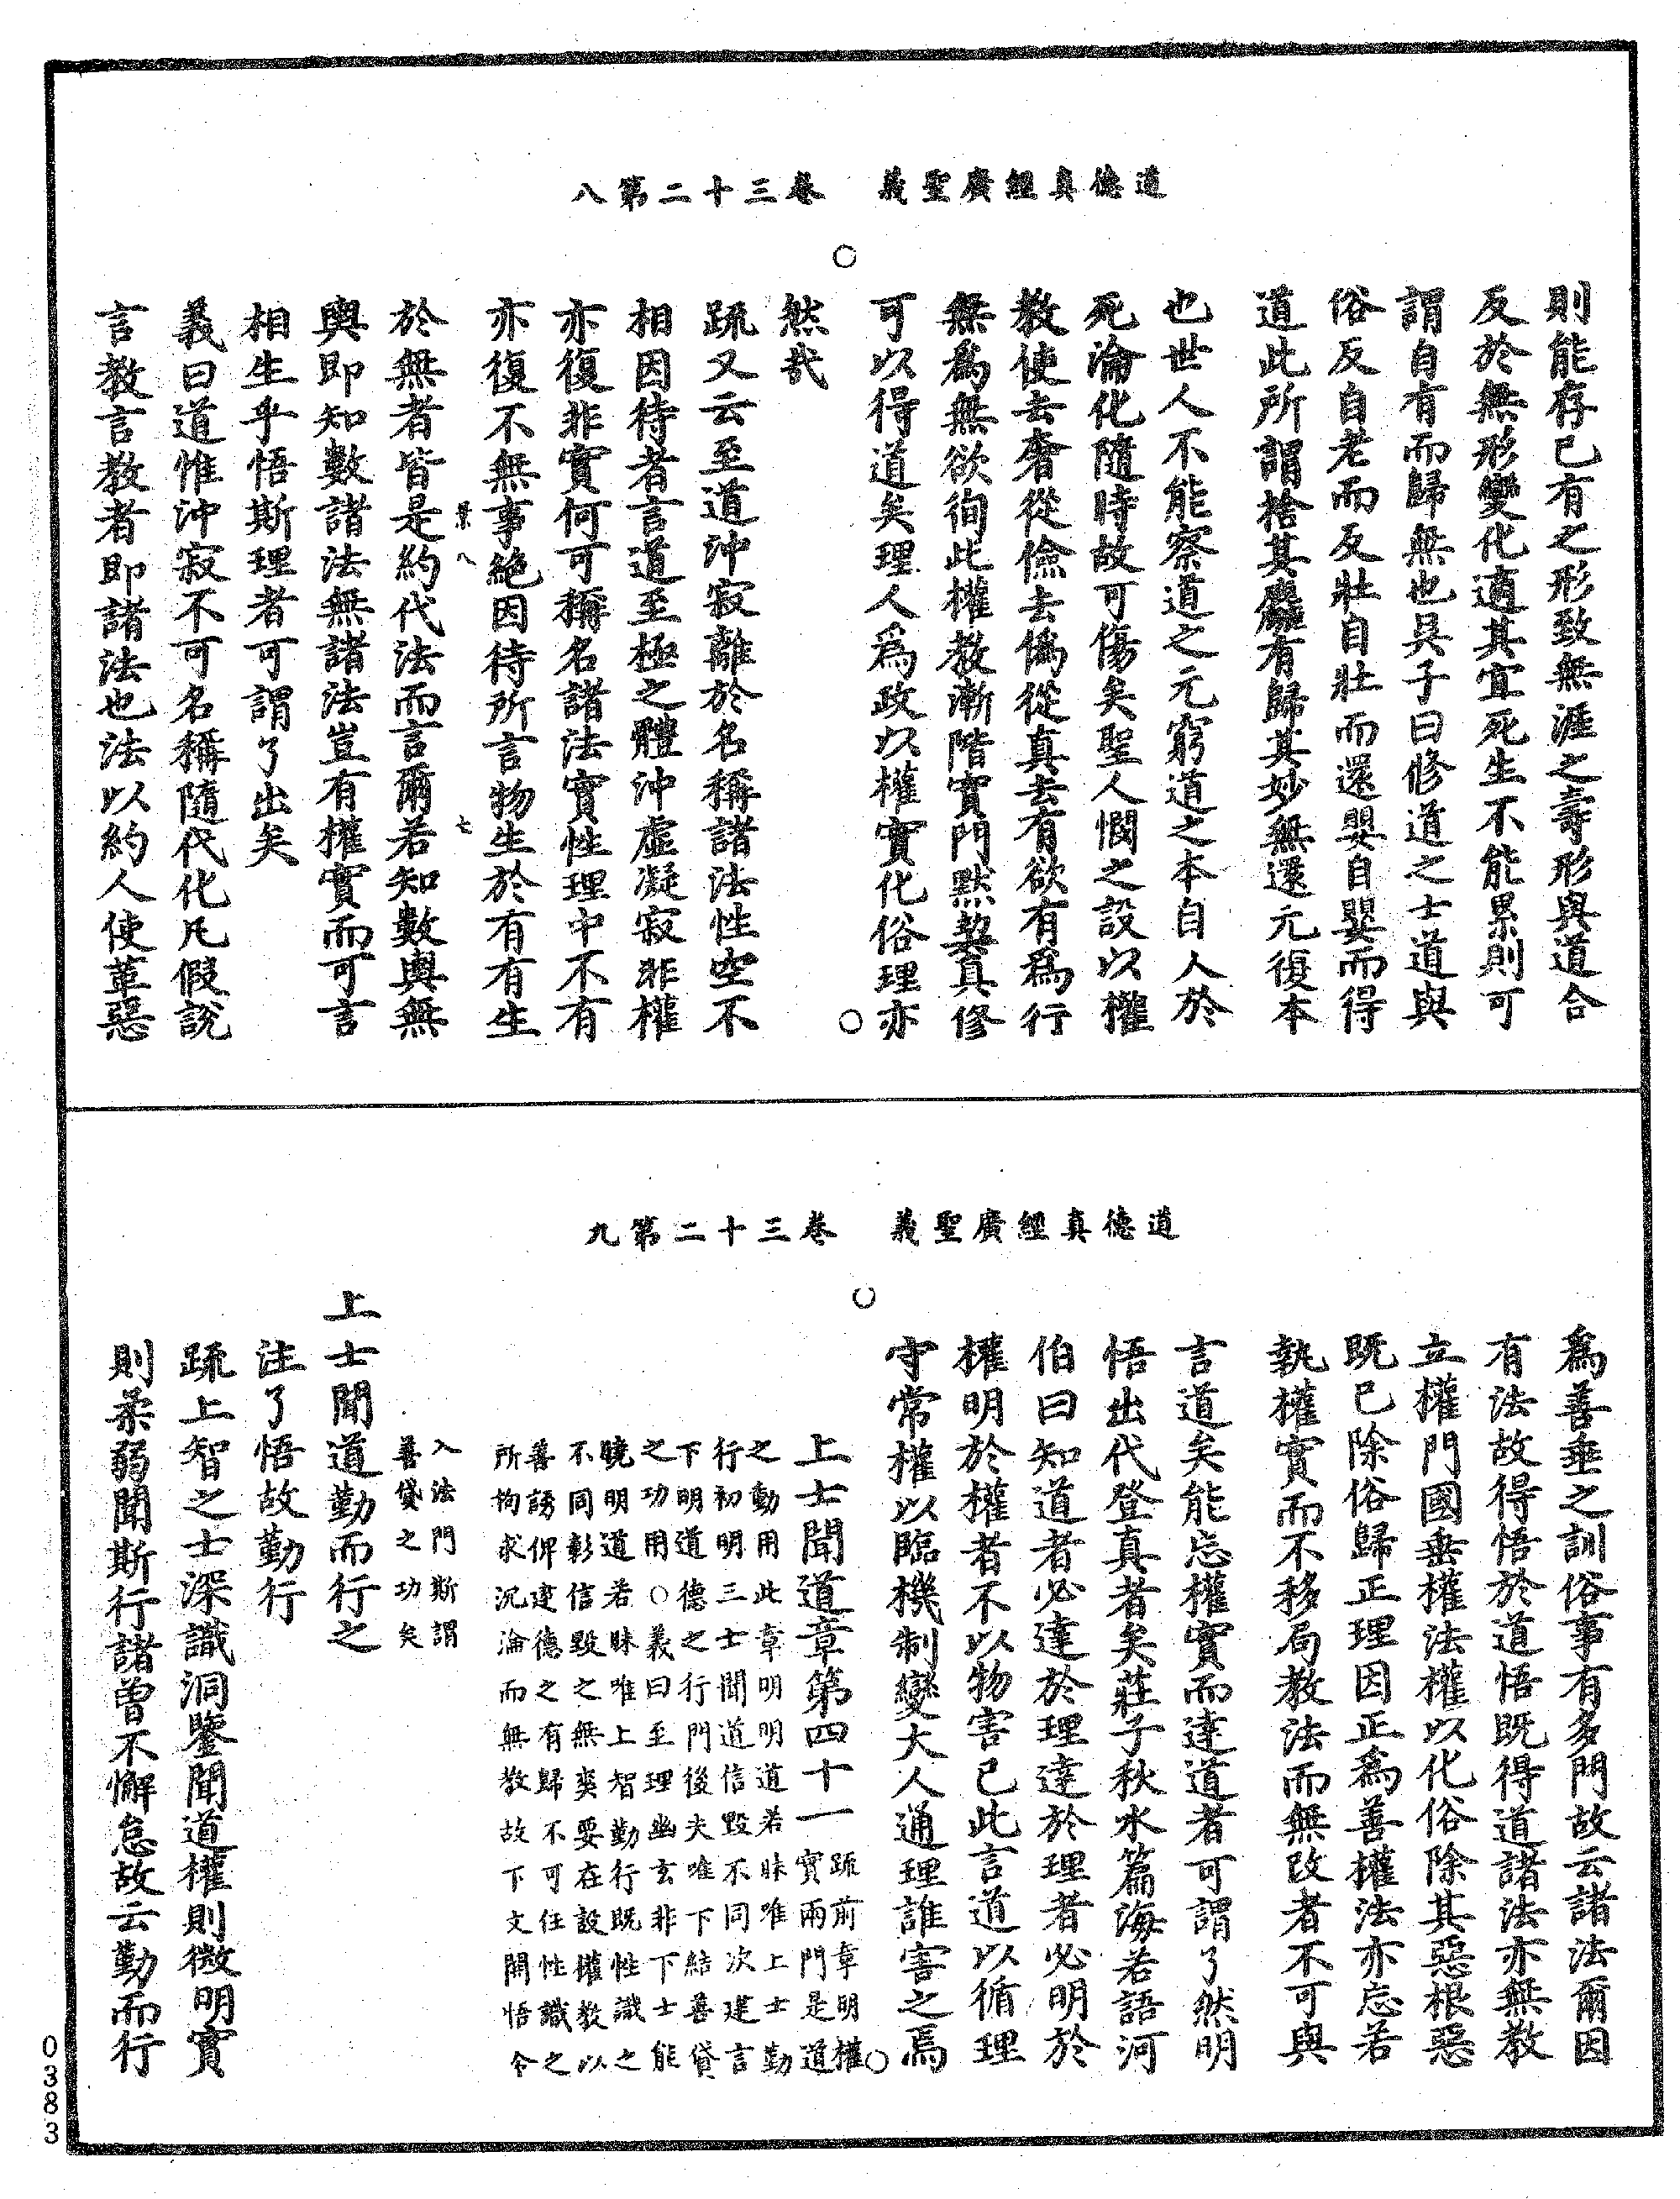 道德真經廣聖義　卷三十二第八
則能存已有之形致無涯之壽形與道合
反於無形變化適其宜死生不能累則可
謂自有而歸無也吳子曰修道之士道與
俗反自老而反壯自壯而還嬰自嬰而得
道此所謂捨其麤有歸其妙無還元復本
也世人不能察道之元窮道之本自人於
死淪化隨時故可傷矣聖人憫之設以權
教使去奢從儉去僞從真去有欲有爲行
無爲無欲徇此權教漸階實門默契真修
可以得道矣理人爲政以權實化俗理亦
然哉
疏又云至道沖寂離於名稱諸法性空不
相因待者言道至極之體沖虛凝寂非權
亦復非實何可稱名諸法實性理中不有
亦復不無事絕因待所言物生於有有生
於無者皆是約代法而言爾若知數輿無
輿即知數諸法無諸法豈有權實而可言
相生乎悟斯理者可謂了出矣
義曰道惟沖寂不可名稱隨代化凡假說
言教言教者即諸法也法以約人使革惡
道德真經廣聖義　卷三十二第九
爲善垂之訓俗事有多門故云諸法爾因
有法故得悟於道悟既得道諸法亦無教
立權門國垂權法權以化俗除其惡根惡
既已除俗歸正理因正爲善權法亦忘若
執權實而不移局教法而無改者不可與
言道矣能忘權實而達道者可謂了然明
悟出代登真者矣莊子秋水篇海若語河
伯曰知道者必達於理達於理者必明於
權明於權者不以物害已此言道以循理
守常權以臨機制變大人通理誰害之焉
上士聞道章第四十一
疏前章明權
實兩門是道
之動用此章明明道若昧唯上士勤
行初明三士聞道信毀不同次建言
下明道德之行門後夫唯下結善貸
之功用○義曰至理幽玄非下士能
曉明道若昧唯上智勤行既性識之
不同彰信毀之無爽要在設權教以
善誘俾建德之有歸不可任性識之
所拘求沉淪而無教故下文開悟令
入法門斯謂
善貸之功矣
上士聞道勤而行之
注了悟故勤行
疏上智之士深識洞鑒聞道權則微明實
則柔弱聞斯行諸曾不懈怠故云勤而行
0383